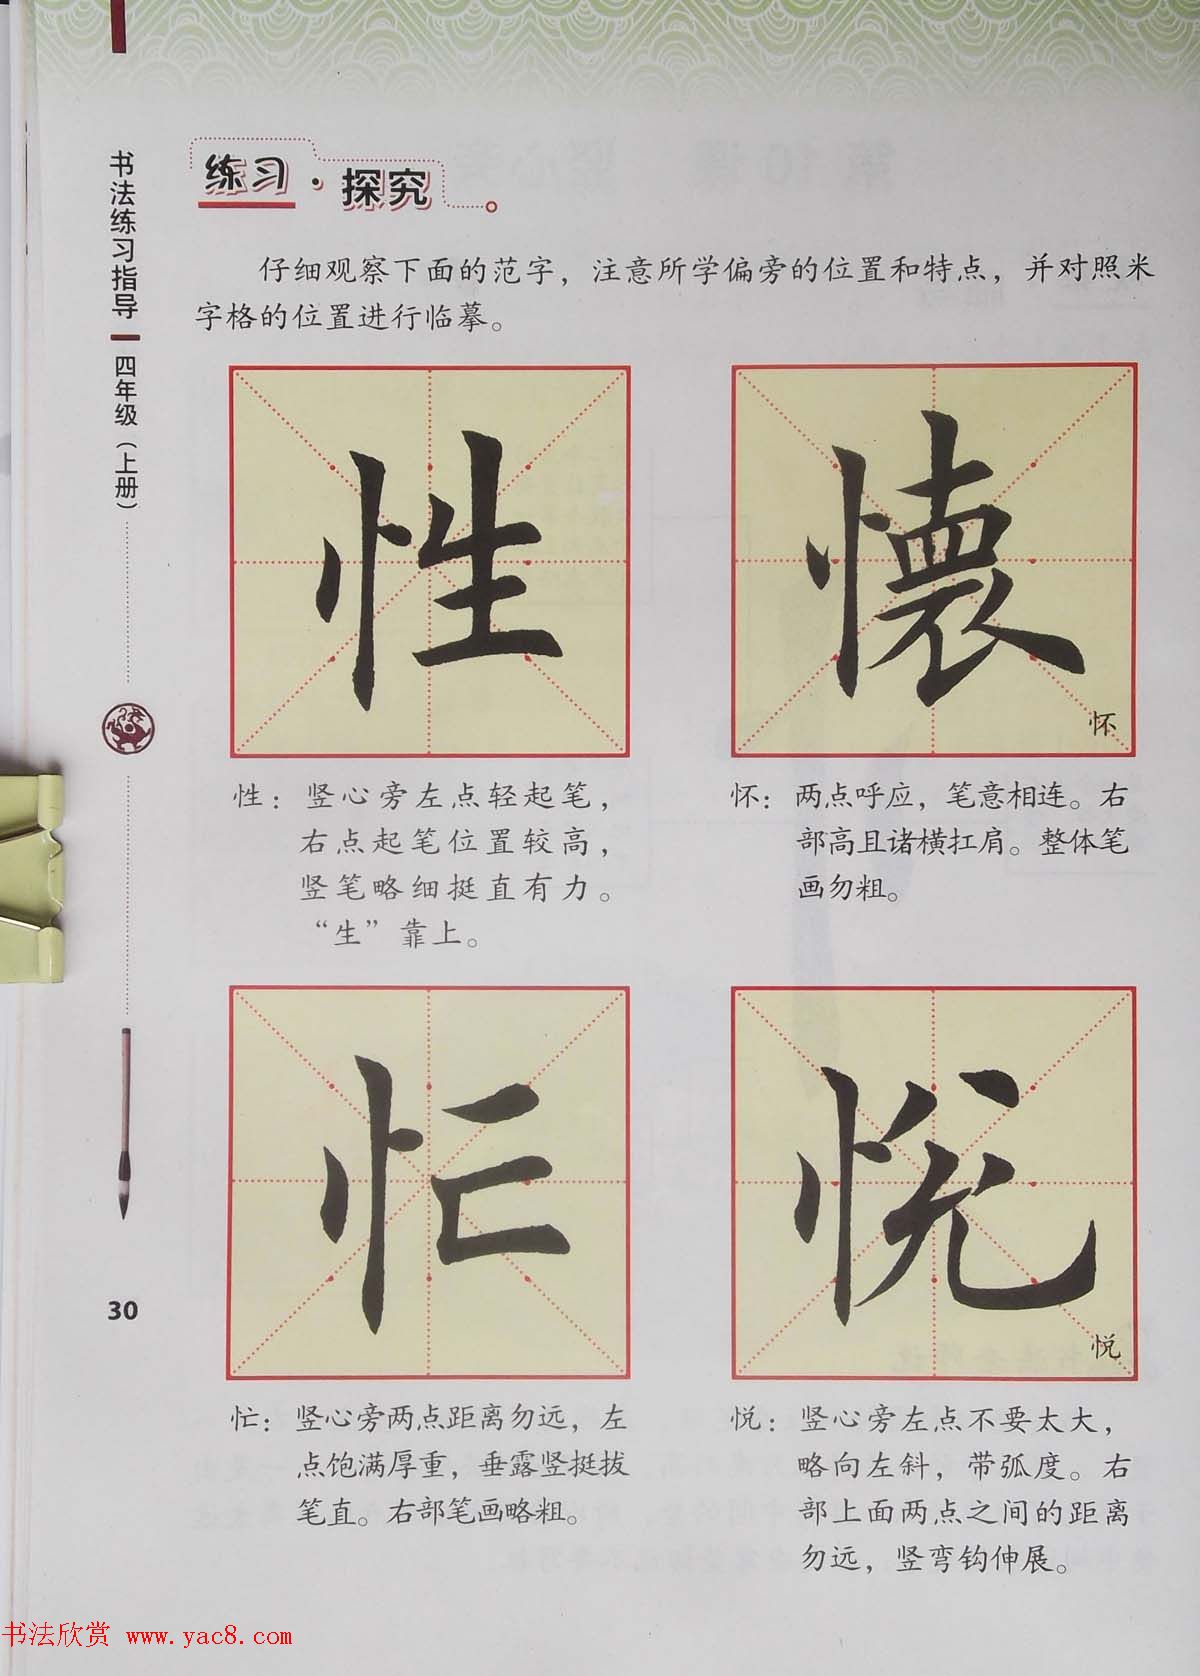 书法练习指导
四年级（上册）
30
练习·探究
仔细观察下面的范字，注意所学偏旁的位置和特点，并对照米
字格的位置进行临摹。
性
性：竖心旁左点轻起笔，
右点起笔位置较高，
竖笔略细挺直有力。
“生”靠上。
懷
怀
怀：两点呼应，笔意相连。右
部高且诸横扛肩。整体笔
画勿粗。
忙
忙：竖心旁两点距离勿远，左
点饱满厚重，垂露竖挺拔
笔直。右部笔画略粗。
悦
悦
悦：竖心旁左点不要太大，
略向左斜，带弧度。右
部上面两点之间的距离
勿远，竖弯钩伸展。
书法欣赏 www.yac8.com